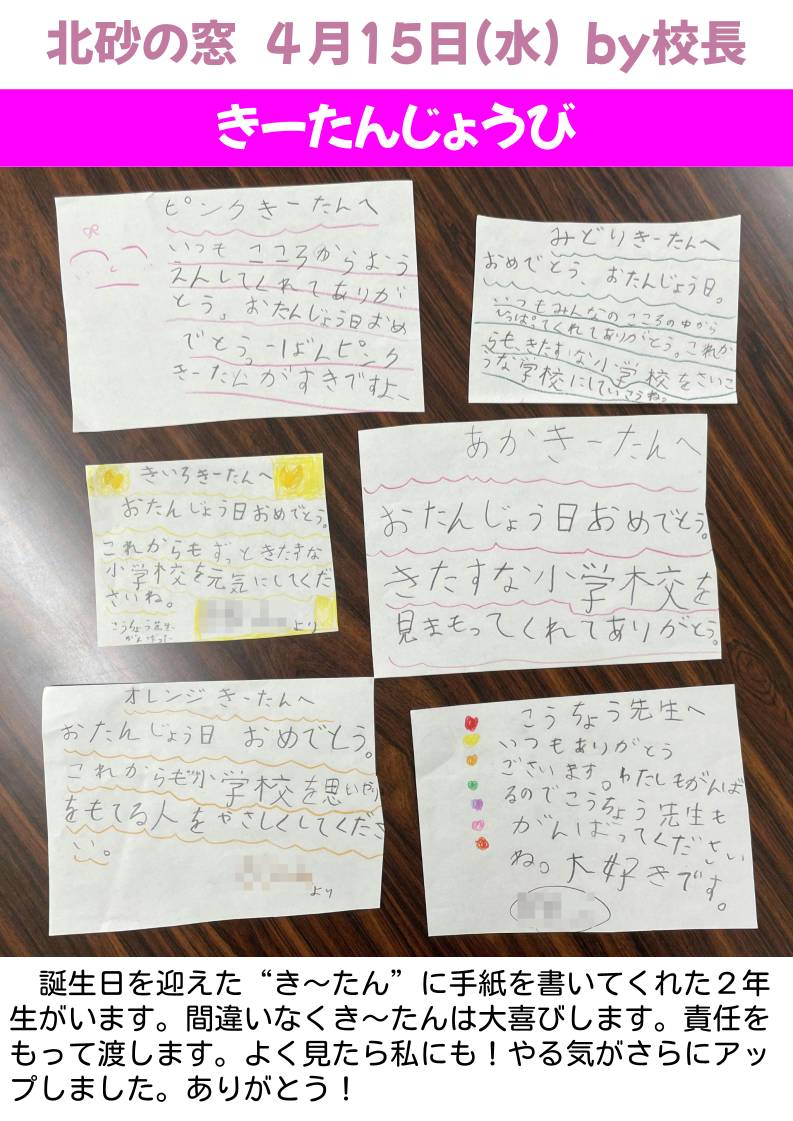 北砂の窓 4月15日(水) by校長
きーたんじょうび
ピンクきーたんへ
いつも こころからおう
えんしてくれてありが
とう。おたんじょう日おめ
でとう。一ばんピンク
きーたんがすきですよー
みどりきーたんへ
おめでとう、おたんじょう日。
いつもみんなのこころの中から
ひっぱってくれてありがとう。これか
らも、きたすな小学校をさいこ
うな学校にしていこうね。
きいろきーたんへ
おたんじょう日おめでとう。
これからもずっときたすな
小学校を元気にしてくだ
さいね。
より
こうちょう先生、
がんばってー
あかきーたんへ
おたんじょう日おめでとう。
きたすな小学校を
見まもってくれてありがとう。
オレンジきーたんへ
おたんじょう日 おめでとう。
これからも小学校を思いやり
をもてる人をやさしくしてくださ
い。
より
こうちょう先生へ
いつもありがとう
ございます。わたしもがんば
るのでこうちょう先生も
がんばってください
ね。大好きです。
　誕生日を迎えた“き～たん”に手紙を書いてくれた２年
生がいます。間違いなくき～たんは大喜びします。責任を
もって渡します。よく見たら私にも！やる気がさらにアッ
プしました。ありがとう！